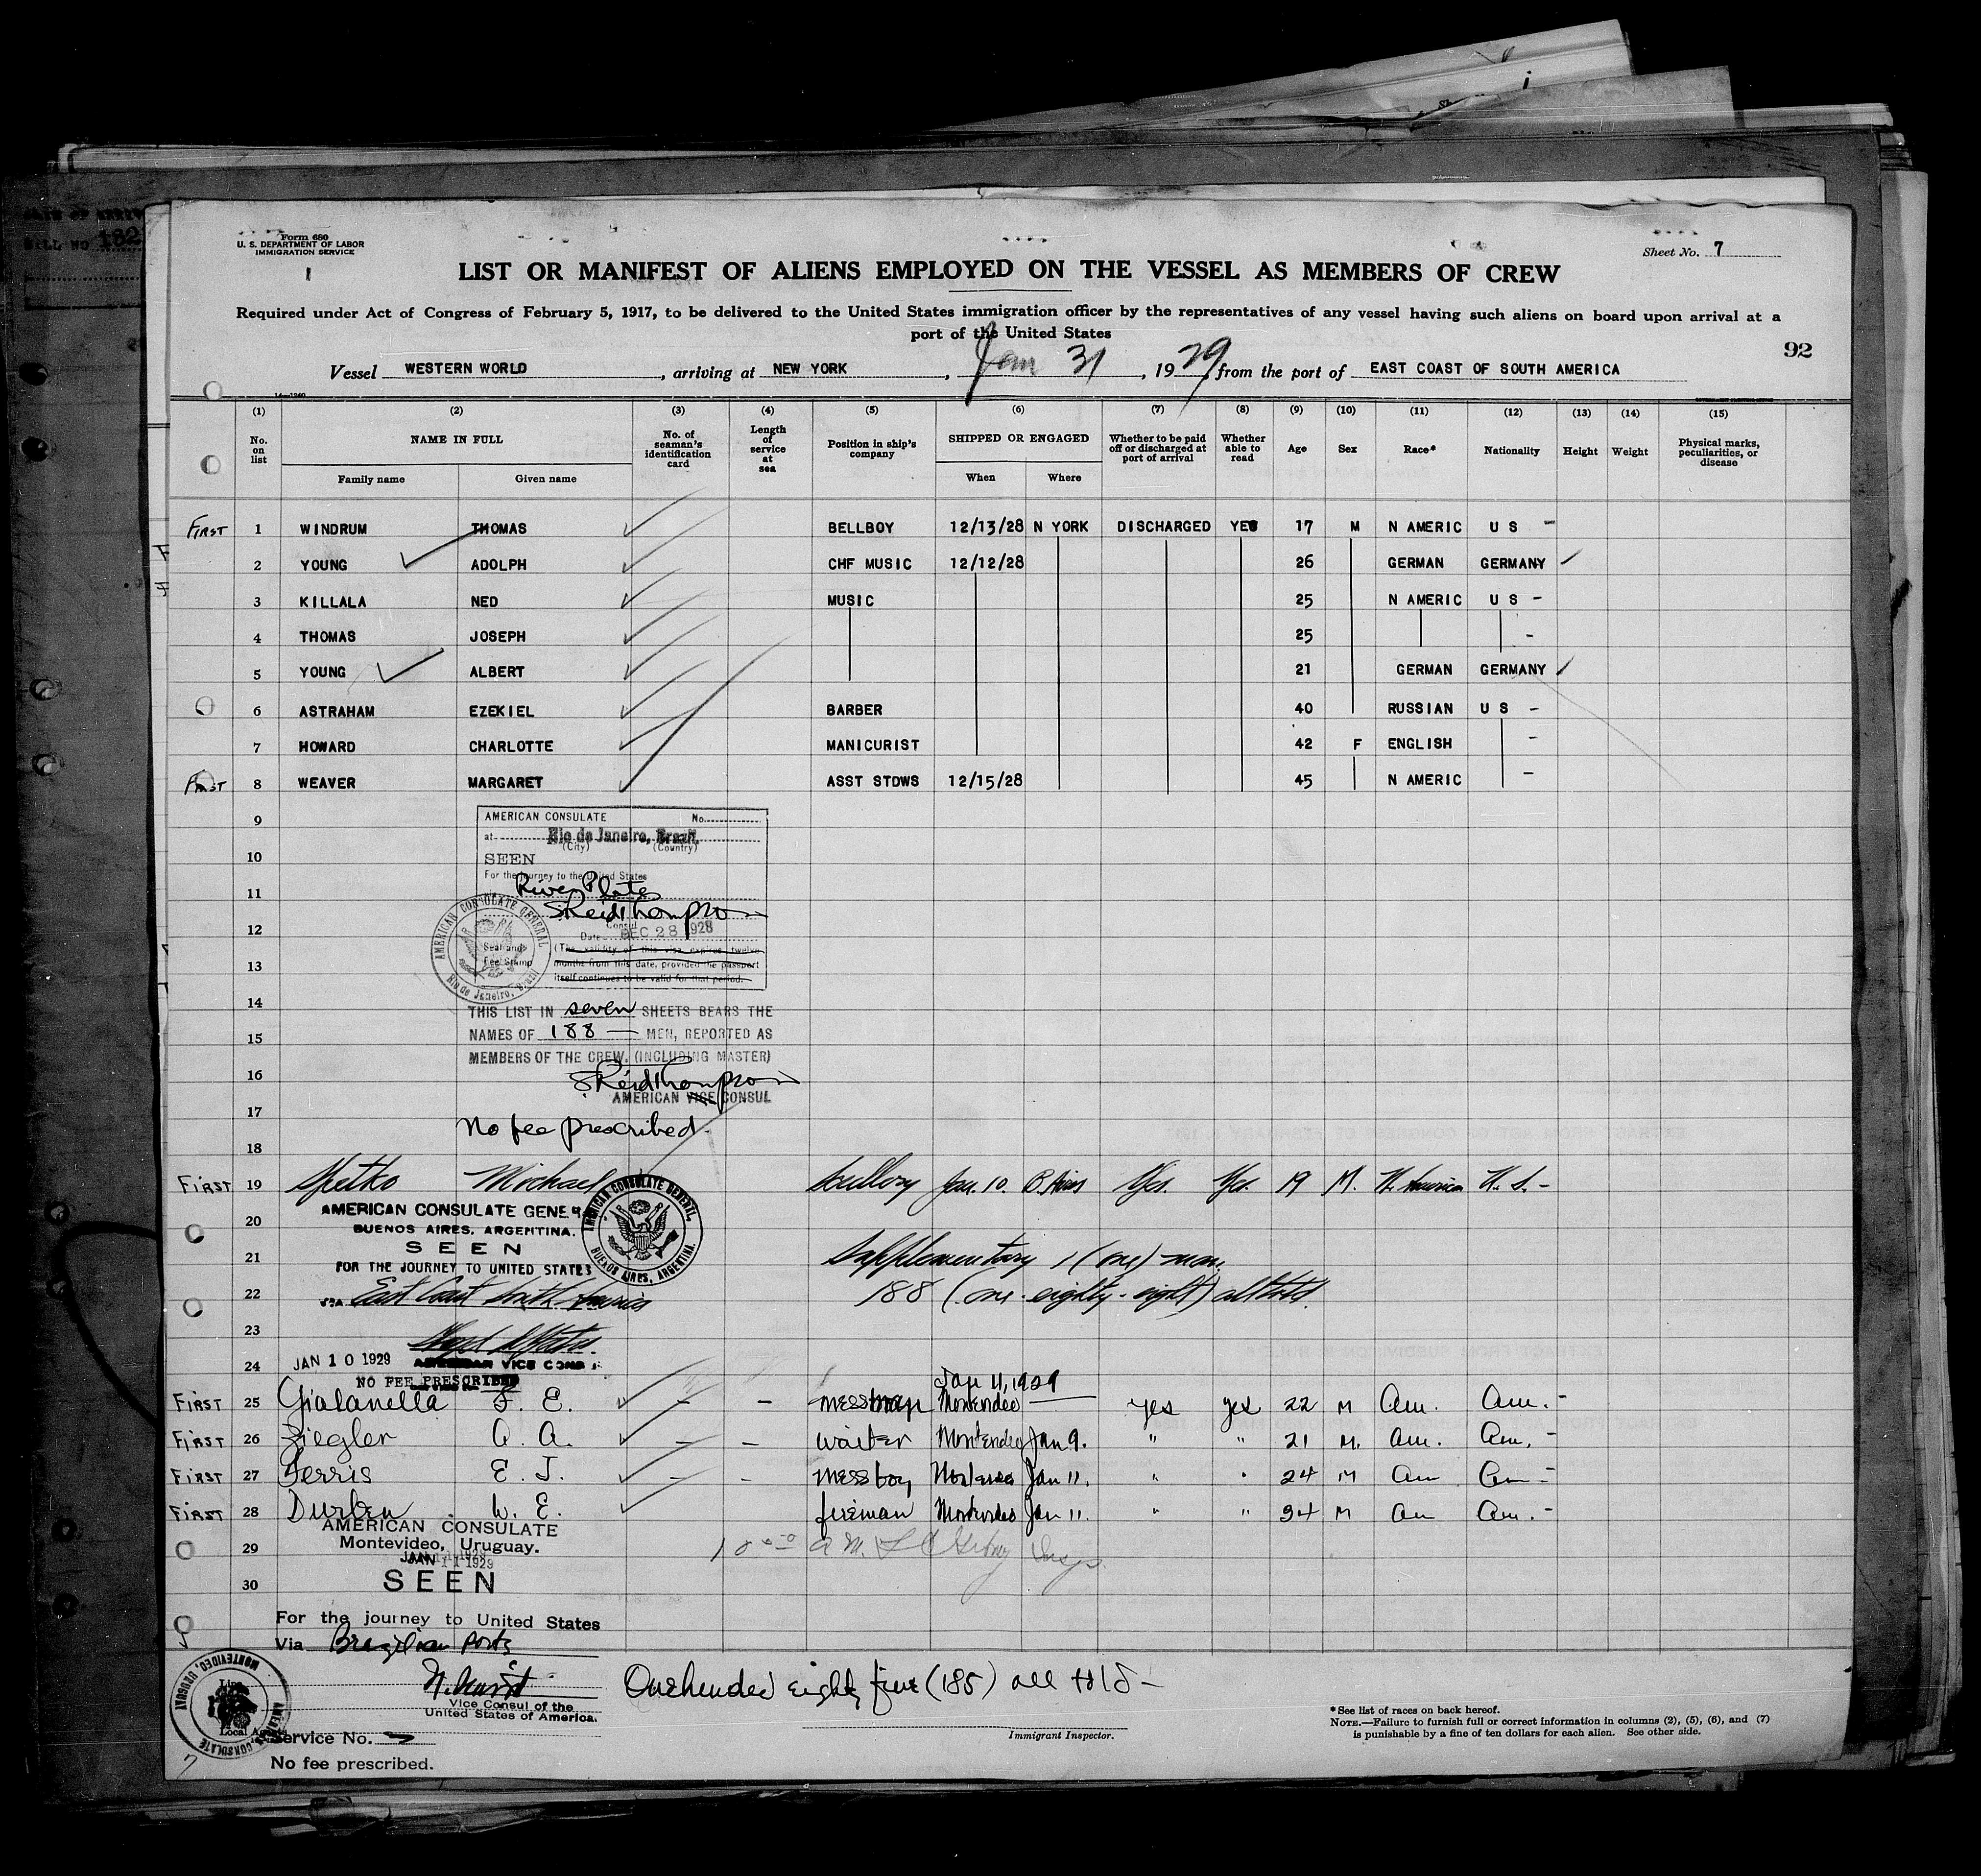 Form 680
U. S. DEPARTMENT OF LABOR
IMMIGRATION SERVICE
Sheet No. 7
LIST OR MANIFEST OF ALIENS EMPLOYED ON THE VESSEL AS MEMBERS OF CREW
Required under Act of Congress of February 5, 1917, to be delivered to the United States immigration officer by the representatives of any vessel having such aliens on board upon arrival at a
port of the United States
92
Vessel WESTERN WORLD, arriving at NEW YORK, Jan 31, 1929 from the port of EAST COAST OF SOUTH AMERICA
(1) (2) (3) (4) (5) (6) (7) (8) (9) (10) (11) (12) (13) (14) (15)
No. on list NAME IN FULL No. of seaman's identification card Length of service at sea Position in ship's company SHIPPED OR ENGAGED Whether to be paid off or discharged at port of arrival Whether able to read Age Sex Race* Nationality Height Weight Physical marks, peculiarities, or disease
Family name Given name When Where
FIRST 1 WINDRUM THOMAS BELLBOY 12/13/28 N YORK DISCHARGED YES 17 M N AMERIC U S -
2 YOUNG ADOLPH CHF MUSIC 12/12/28 26 GERMAN GERMANY
3 KILLALA NED MUSIC 25 N AMERIC U S -
4 THOMAS JOSEPH 25 -
5 YOUNG ALBERT 21 GERMAN GERMANY
6 ASTRAHAM EZEKIEL BARBER 40 RUSSIAN U S -
7 HOWARD CHARLOTTE MANICURIST 42 F ENGLISH -
FIRST 8 WEAVER MARGARET ASST STDWS 12/15/28 45 N AMERIC -
9
AMERICAN CONSULATE No.
at Rio de Janeiro, Brazil.
(City) (Country)
10
SEEN
For the journey to the United States
11
River Plate
S Reid Thompson
Consul
12
Date DEC 28 1928
Seal and Fee Stamp
(The validity of this visa expires twelve
13
months from this date, provided the passport
itself continues to be valid for that period.
AMERICAN CONSULATE GENERAL
Rio de Janeiro, Brazil
14
THIS LIST IN seven SHEETS BEARS THE
15
NAMES OF 188 — MEN, REPORTED AS
MEMBERS OF THE CREW. (INCLUDING MASTER)
16
S Reid Thompson
AMERICAN VICE CONSUL
17
No fee prescribed.
18
FIRST 19 Spetko Michael scullery Jan. 10. B. Aires Yes. Yes. 19 M. N. America U. S. -
AMERICAN CONSULATE GENERAL
20
BUENOS AIRES, ARGENTINA.
SEEN
21
FOR THE JOURNEY TO UNITED STATES
AMERICAN CONSULATE GENERAL, BUENOS AIRES, ARGENTINA.
Supplementary 1 (one) man.
22
VIA East Coast South America
188 (one-eighty-eight) all told.
23
24
JAN 10 1929 AMERICAN VICE CONSUL
NO FEE PRESCRIBED
Jan 11, 1929
FIRST 25 Gialanella F. E. - - messman Montevideo yes yes 22 M Am. Am. -
FIRST 26 Ziegler A. A. - - waiter Montevideo Jan 9. " " 21 M. Am. Am. -
FIRST 27 Ferris E. J. - - messboy Montevideo Jan 11. " " 24 M Am Am -
FIRST 28 Durben W. E. fireman Montevideo Jan 11. " " 34 M Am Am. -
AMERICAN CONSULATE
29
Montevideo, Uruguay.
JAN 11 1929
30
SEEN
For the journey to United States
Via Brazilian ports
Vice Consul of the
United States of America.
One hundred eighty five (185) all told -
MONTEVIDEO, URUGUAY
AMERICAN CONSULATE
Service No.
No fee prescribed.
Immigrant Inspector.
* See list of races on back hereof.
NOTE.—Failure to furnish full or correct information in columns (2), (5), (6), and (7)
is punishable by a fine of ten dollars for each alien. See other side.